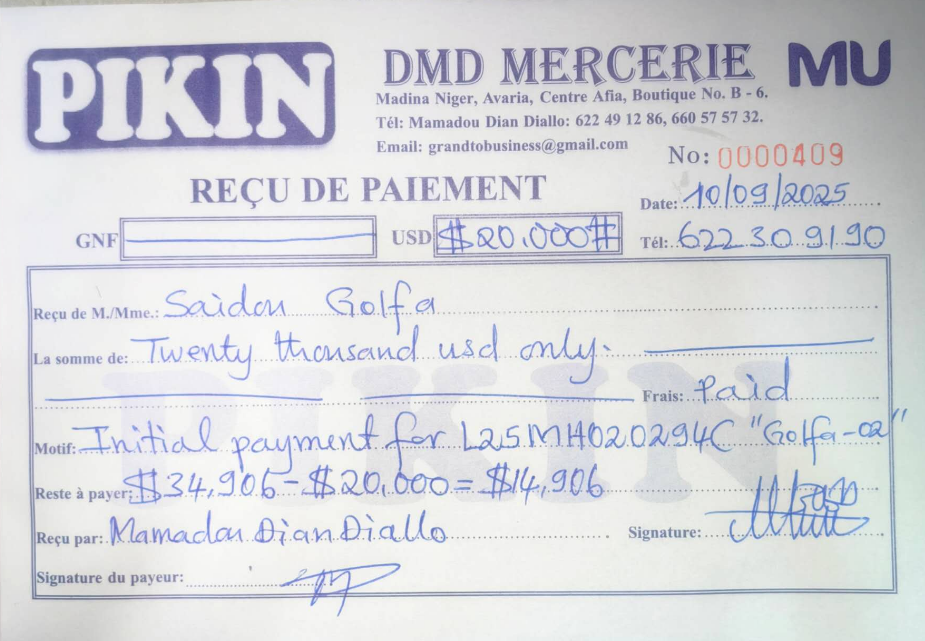 PIKIN
DMD MERCERIE
MU
Madina Niger, Avaria, Centre Afia, Boutique No. B - 6.
Tél: Mamadou Dian Diallo: 622 49 12 86, 660 57 57 32.
Email: grandtobusiness@gmail.com
No: 0000409
REÇU DE PAIEMENT
Date: 10/09/2025
GNF
USD $20.000#
Tél: 622 30 91 90
Reçu de M./Mme.: Saidou Golfa
La somme de: Twenty thousand usd only.
Frais: Paid
Motif: Initial payment for L25MH020294C "Golfa-02"
Reste à payer: $34,906-$20,000=$14,906
Reçu par: Mamadou Dian Diallo
Signature:
Signature du payeur:
PIKIN